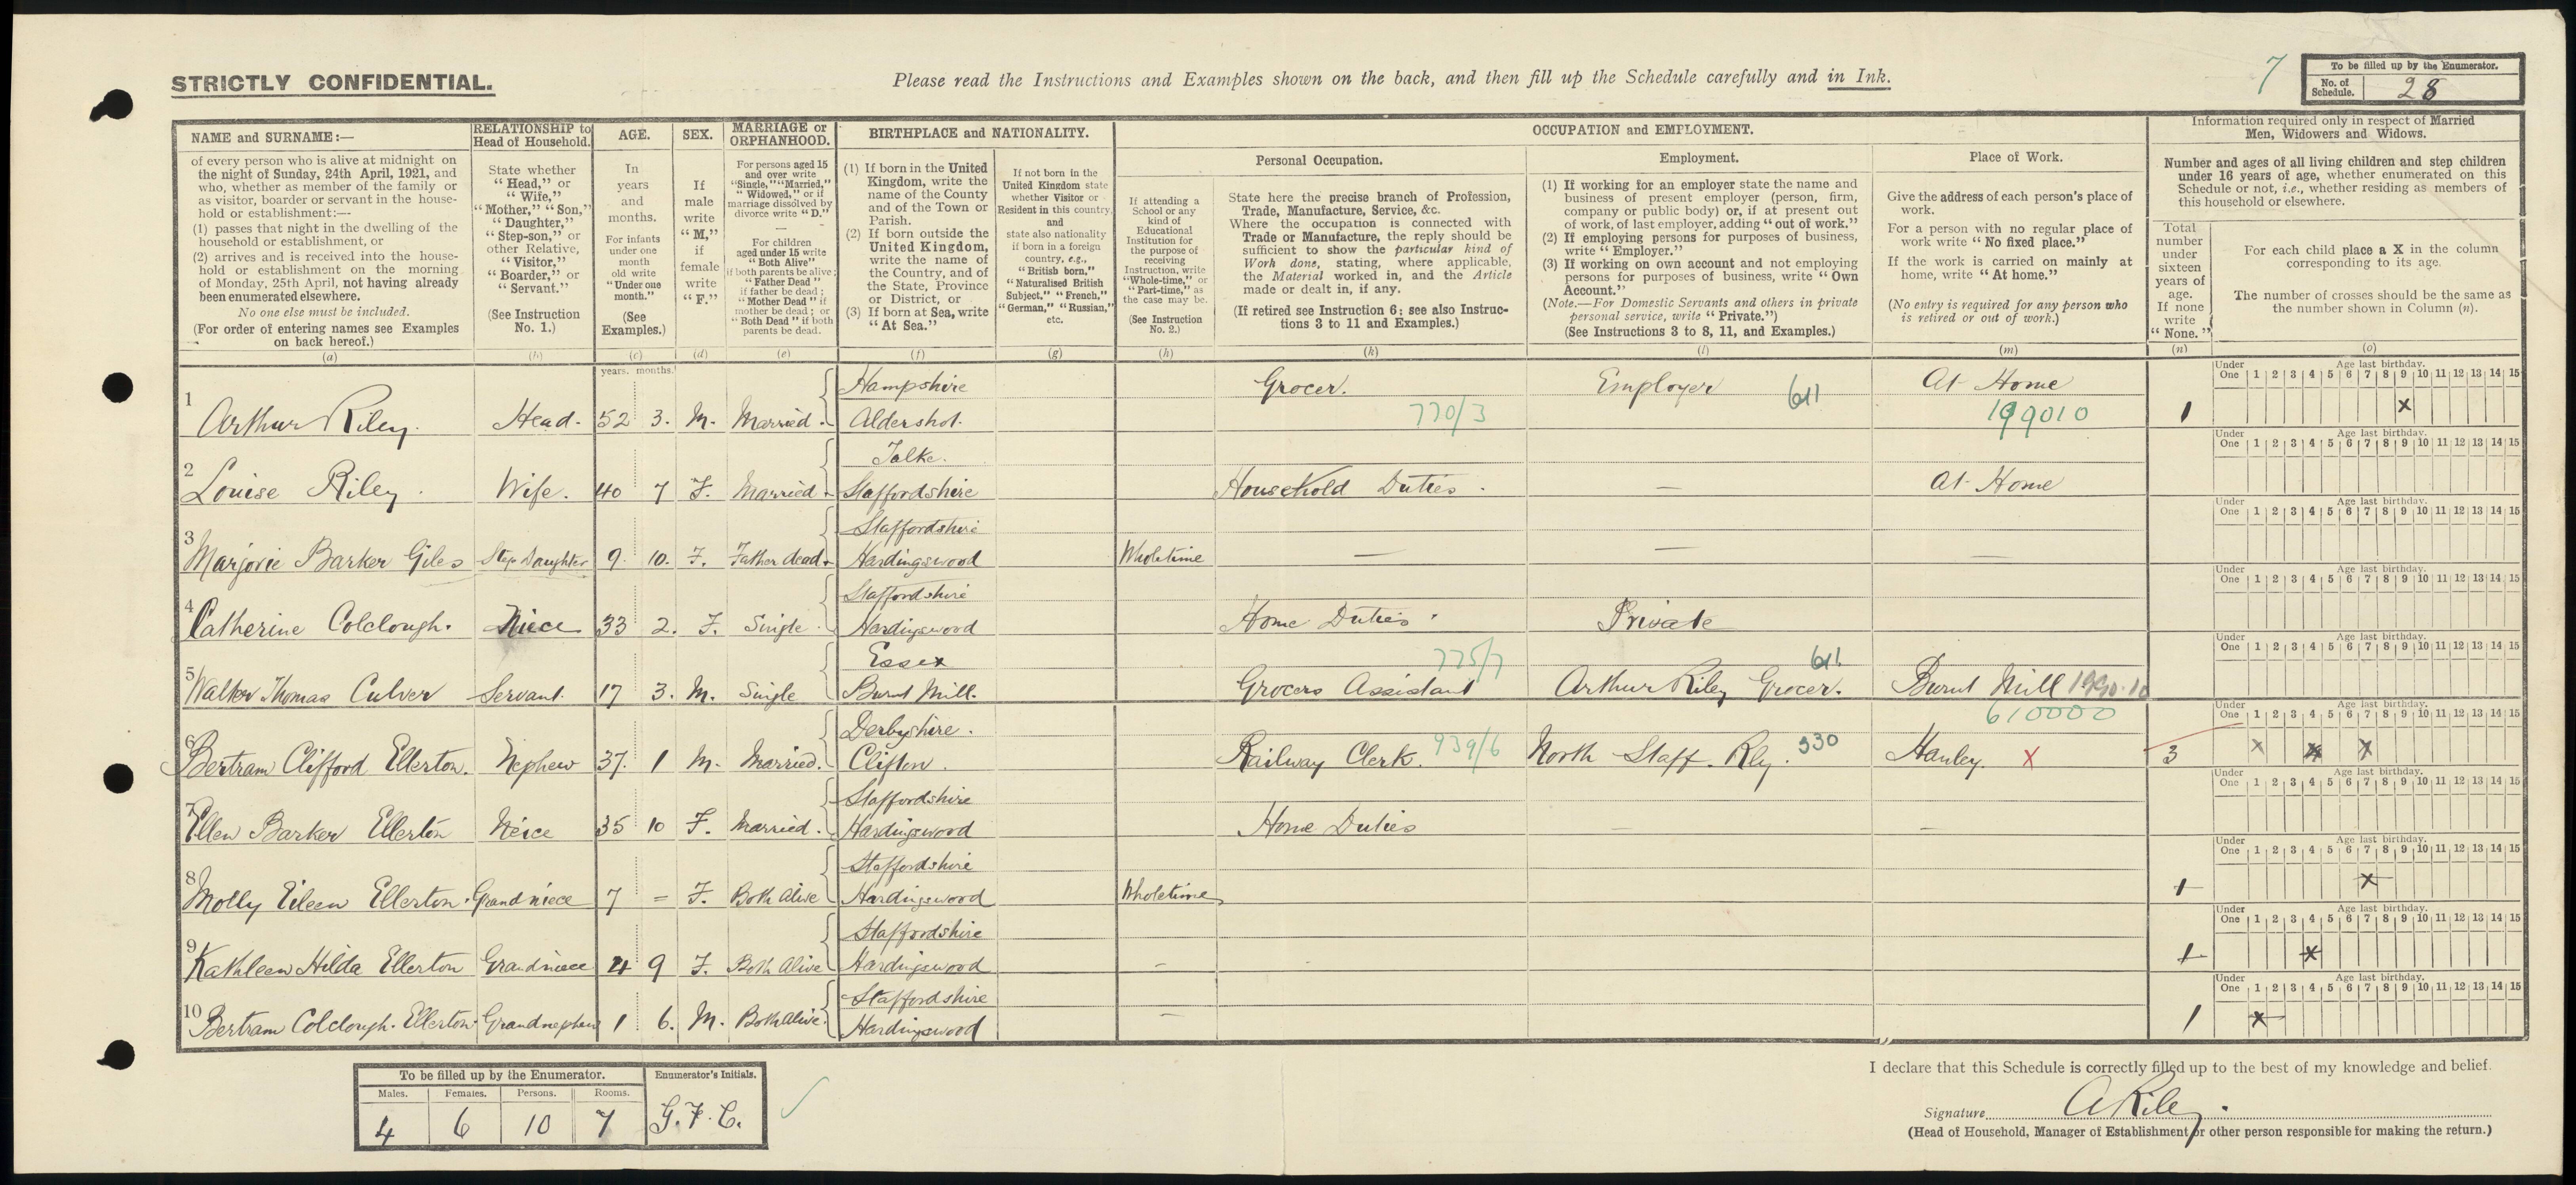 STRICTLY CONFIDENTIAL.
Please read the Instructions and Examples shown on the back, and then fill up the Schedule carefully and in Ink.
7
To be filled up by the Enumerator.
No. of Schedule. 28
NAME and SURNAME:—
of every person who is alive at midnight on
the night of Sunday, 24th April, 1921, and
who, whether as member of the family or
as visitor, boarder or servant in the house-
hold or establishment:—
(1) passes that night in the dwelling of the
household or establishment, or
(2) arrives and is received into the house-
hold or establishment on the morning
of Monday, 25th April, not having already
been enumerated elsewhere.
No one else must be included.
(For order of entering names see Examples
on back hereof.)
(a)
RELATIONSHIP to
Head of Household.
State whether
"Head," or
"Wife,"
"Mother," "Son,"
"Daughter,"
"Step-son," or
other Relative,
"Visitor,"
"Boarder," or
"Servant."
(See Instruction
No. 1.)
(b)
AGE.
In
years
and
months.
For infants
under one
month
old write
"Under one
month."
(See
Examples.)
(c)
SEX.
If
male
write
"M,"
if
female
write
"F."
(d)
MARRIAGE or
ORPHANHOOD.
For persons aged 15
and over write
"Single," "Married,"
"Widowed," or if
marriage dissolved by
divorce write "D."
For children
aged under 15 write
"Both Alive"
if both parents be alive;
"Father Dead"
if father be dead;
"Mother Dead" if
mother be dead; or
"Both Dead" if both
parents be dead.
(e)
BIRTHPLACE and NATIONALITY.
(1) If born in the United
Kingdom, write the
name of the County
and of the Town or
Parish.
(2) If born outside the
United Kingdom,
write the name of
the Country, and of
the State, Province
or District, or
(3) If born at Sea, write
"At Sea."
(f)
If not born in the
United Kingdom state
whether Visitor or
Resident in this country,
and
state also nationality
if born in a foreign
country, e.g.,
"British born,"
"Naturalised British
Subject," "French,"
"German," "Russian,"
etc.
(g)
OCCUPATION and EMPLOYMENT.
If attending a
School or any
kind of
Educational
Institution for
the purpose of
receiving
Instruction, write
"Whole-time," or
"Part-time," as
the case may be.
(See Instruction
No. 2.)
(h)
Personal Occupation.
State here the precise branch of Profession,
Trade, Manufacture, Service, &c.
Where the occupation is connected with
Trade or Manufacture, the reply should be
sufficient to show the particular kind of
Work done, stating, where applicable,
the Material worked in, and the Article
made or dealt in, if any.
(If retired see Instruction 6; see also Instruc-
tions 3 to 11 and Examples.)
(k)
Employment.
(1) If working for an employer state the name and
business of present employer (person, firm,
company or public body) or, if at present out
of work, of last employer, adding "out of work."
(2) If employing persons for purposes of business,
write "Employer."
(3) If working on own account and not employing
persons for purposes of business, write "Own
Account."
(Note.—For Domestic Servants and others in private
personal service, write "Private.")
(See Instructions 3 to 8, 11, and Examples.)
(l)
Place of Work.
Give the address of each person's place of
work.
For a person with no regular place of
work write "No fixed place."
If the work is carried on mainly at
home, write "At home."
(No entry is required for any person who
is retired or out of work.)
(m)
Information required only in respect of Married
Men, Widowers and Widows.
Number and ages of all living children and step children
under 16 years of age, whether enumerated on this
Schedule or not, i.e., whether residing as members of
this household or elsewhere.
Total
number
under
sixteen
years of
age.
If none
write
"None."
(n)
For each child place a X in the column
corresponding to its age.
The number of crosses should be the same as
the number shown in Column (n).
(o)
years. months.
Under One Age last birthday. 1 2 3 4 5 6 7 8 9 10 11 12 13 14 15
1 Arthur Riley. Head. 52 3. M. Married. Hampshire Aldershot. Grocer. 770/3 Employer 611 At Home 199010 1 X
Under One Age last birthday. 1 2 3 4 5 6 7 8 9 10 11 12 13 14 15
2 Louise Riley. Wife. 40 7 F. Married. Talke. Staffordshire Household Duties. — At Home
Under One Age last birthday. 1 2 3 4 5 6 7 8 9 10 11 12 13 14 15
3 Marjorie Barker Giles Step Daughter 9. 10. F. Father dead. Staffordshire Hardingswood Wholetime — — —
Under One Age last birthday. 1 2 3 4 5 6 7 8 9 10 11 12 13 14 15
4 Catherine Colclough. Niece 33 2. F. Single. Staffordshire Hardingswood Home Duties. Private
Under One Age last birthday. 1 2 3 4 5 6 7 8 9 10 11 12 13 14 15
5 Walter Thomas Culver Servant. 17 3. M. Single Essex Burnt Mill. Grocers Assistant 775/7 Arthur Riley Grocer. 611 Burnt Mill
Under One Age last birthday. 1 2 3 4 5 6 7 8 9 10 11 12 13 14 15
6 Bertram Clifford Ellerton. Nephew 37. 1 M. Married. Derbyshire. Clifton. Railway Clerk. 939/6 North Staff. Rly. 330 Hanley. X 610000 3 X X X
Under One Age last birthday. 1 2 3 4 5 6 7 8 9 10 11 12 13 14 15
7 Ellen Barker Ellerton Neice 35 10 F. Married. Staffordshire Hardingswood Home Duties — —
Under One Age last birthday. 1 2 3 4 5 6 7 8 9 10 11 12 13 14 15
8 Molly Eileen Ellerton. Grandniece 7 = F. Both Alive Staffordshire Hardingswood Wholetime 1 X
Under One Age last birthday. 1 2 3 4 5 6 7 8 9 10 11 12 13 14 15
9 Kathleen Hilda Ellerton Grandniece 4 9 F. Both Alive Staffordshire Hardingswood — 1 X
Under One Age last birthday. 1 2 3 4 5 6 7 8 9 10 11 12 13 14 15
10 Bertram Colclough. Ellerton. Grandnephew 1 6. M. Both Alive. Staffordshire Hardingswood — 1 X
To be filled up by the Enumerator.
Males. Females. Persons. Rooms.
4 6 10 7
Enumerator's Initials.
G.F.C.
I declare that this Schedule is correctly filled up to the best of my knowledge and belief.
Signature A Riley.
(Head of Household, Manager of Establishment or other person responsible for making the return.)